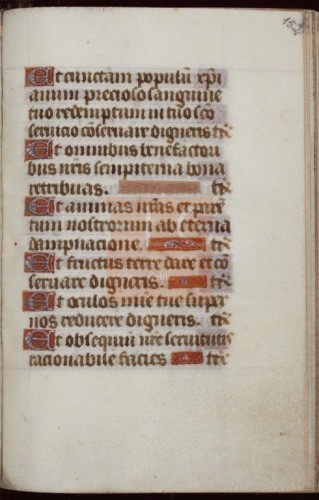 Et cunctam populu xpi
anum precioso sanguine
tuo redemptum in tuo sco
seruicio coseruare digneris
Et omnibus benefactori
bus nris sempiterna bona
retribuas.
Et animas nras et paren
tum nostrorum ab eterna
dampnacione.
Et fructus terre dare et co
seruare digneris.
Et oculos mie tue super
nos reducere digneris.
Et obsequiu nre seruitutis
racionabile facies